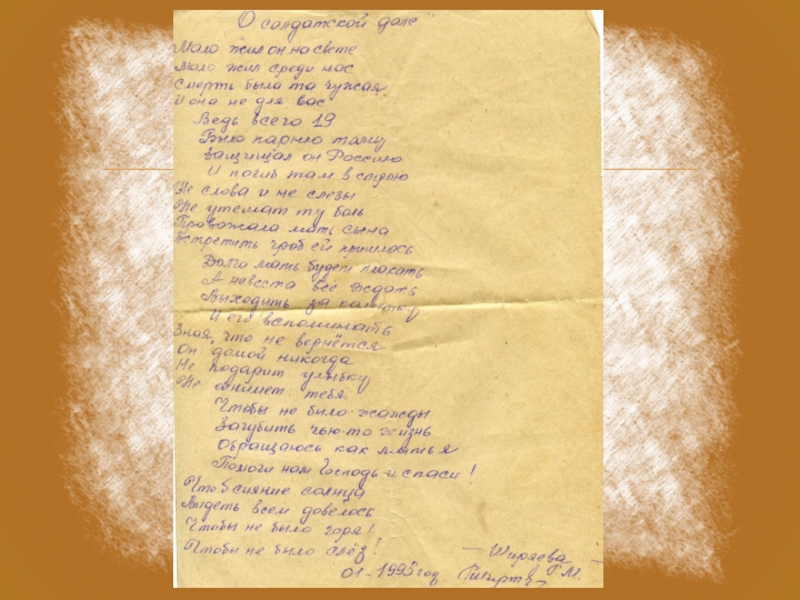 О солдатской доле"
Мало жил он на свете
Мало жил среди нас
Смерть была та чужая
И она не для вас
Ведь всего 19
Было парню тому
Защищал он Россию
И погиб там в строю
Не слова и не слезы
Не утемат ту боль
Провожала мать сына
Встретить гроб ей пришлось
Долго мать будет плакать
А невеста все ждать
Выходить за калитку
И его вспоминать
Зная, что не вернётся
Он домой никогда
Не подарит улыбку
Не обнимет тебя.
Чтобы не было жажды
Загубить чью-то жизнь
Обращаюсь как мать я
Помоги нам Господь и спаси!
Чтоб сияние солнца
Видеть всем довелось
Чтобы не было горя!
Чтобы не было слёз!
— Ширяева —
01-1995 год. Г.М.